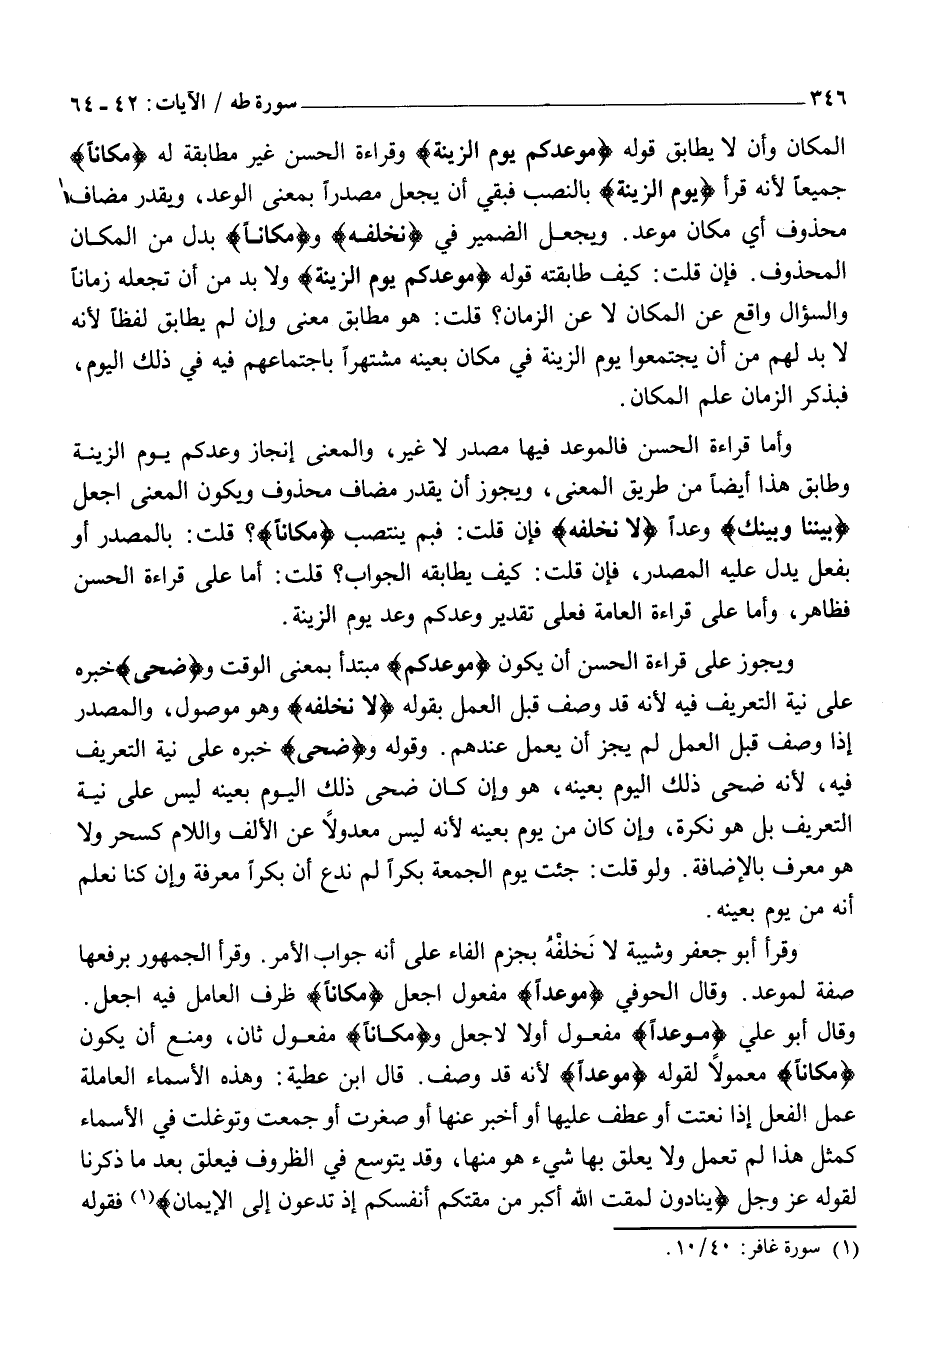 ٣٤٦ ـــــــــــــــــــــــــــــــــــــــــــ سورة طه / الآيات: ٤٢ ـ ٦٤
المكان وأن لا يطابق قوله ﴿موعدكم يوم الزينة﴾ وقراءة الحسن غير مطابقة له ﴿مكاناً﴾
جميعاً لأنه قرأ ﴿يوم الزينة﴾ بالنصب فبقي أن يجعل مصدراً بمعنى الوعد، ويقدر مضاف
محذوف أي مكان موعد. ويجعل الضمير في ﴿نخلفه﴾ و﴿مكاناً﴾ بدل من المكان
المحذوف. فإن قلت: كيف طابقته قوله ﴿موعدكم يوم الزينة﴾ ولا بد من أن تجعله زماناً
والسؤال واقع عن المكان لا عن الزمان؟ قلت: هو مطابق معنى وإن لم يطابق لفظاً لأنه
لا بد لهم من أن يجتمعوا يوم الزينة في مكان بعينه مشتهراً باجتماعهم فيه في ذلك اليوم،
فبذكر الزمان علم المكان.
وأما قراءة الحسن فالموعد فيها مصدر لا غير، والمعنى إنجاز وعدكم يوم الزينة
وطابق هذا أيضاً من طريق المعنى، ويجوز أن يقدر مضاف محذوف ويكون المعنى اجعل
﴿بيننا وبينك﴾ وعداً ﴿لا نخلفه﴾ فإن قلت: فبم ينتصب ﴿مكاناً﴾؟ قلت: بالمصدر أو
بفعل يدل عليه المصدر، فإن قلت: كيف يطابقه الجواب؟ قلت: أما على قراءة الحسن
فظاهر، وأما على قراءة العامة فعلى تقدير وعدكم وعد يوم الزينة.
ويجوز على قراءة الحسن أن يكون ﴿موعدكم﴾ مبتدأ بمعنى الوقت و﴿ضحى﴾خبره
على نية التعريف فيه لأنه قد وصف قبل العمل بقوله ﴿لا نخلفه﴾ وهو موصول، والمصدر
إذا وصف قبل العمل لم يجز أن يعمل عندهم. وقوله و﴿ضحى﴾ خبره على نية التعريف
فيه، لأنه ضحى ذلك اليوم بعينه، هو وإن كان ضحى ذلك اليوم بعينه ليس على نية
التعريف بل هو نكرة، وإن كان من يوم بعينه لأنه ليس معدولاً عن الألف واللام كسحر ولا
هو معرف بالإضافة. ولو قلت: جئت يوم الجمعة بكراً لم ندع أن بكراً معرفة وإن كنا نعلم
أنه من يوم بعينه.
وقرأ أبو جعفر وشيبة لا نَخلفْهُ بجزم الفاء على أنه جواب الأمر. وقرأ الجمهور برفعها
صفة لموعد. وقال الحوفي ﴿موعداً﴾ مفعول اجعل ﴿مكاناً﴾ ظرف العامل فيه اجعل.
وقال أبو علي ﴿موعداً﴾ مفعول أولا لاجعل و﴿مكاناً﴾ مفعول ثان، ومنع أن يكون
﴿مكاناً﴾ معمولاً لقوله ﴿موعداً﴾ لأنه قد وصف. قال ابن عطية: وهذه الأسماء العاملة
عمل الفعل إذا نعتت أو عطف عليها أو أخبر عنها أو صغرت أو جمعت وتوغلت في الأسماء
كمثل هذا لم تعمل ولا يعلق بها شيء هو منها، وقد يتوسع في الظروف فيعلق بعد ما ذكرنا
لقوله عز وجل ﴿ينادون لمقت الله أكبر من مقتكم أنفسكم إذ تدعون إلى الإيمان﴾(١) فقوله
(١) سورة غافر: ٤٠/١٠.